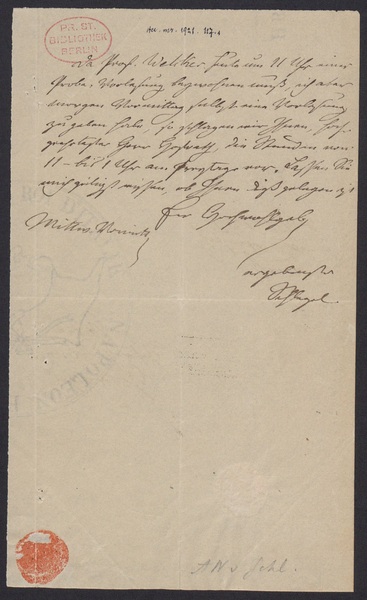 acc. ms. 1921. 117.
PR. ST.
BIBLIOTHEK
BERLIN
Da Prof. Welcker heute um 11 Uhr einer
Probe-Vorlesung beywohnen muß, ich aber
morgen Vormittag selbst eine Vorlesung
zu geben habe, so schlagen wir Ihnen, hoch-
geehrtester Herr, die Stunden von
11 – bis 1 Uhr am Freytage vor. Lassen Sie
mich gütigst wissen, ob Ihnen dieß gelegen ist
Mittw. Vormitt.
Der
ergebenster
Schlegel.
NAPOLEON
AW v Schl.